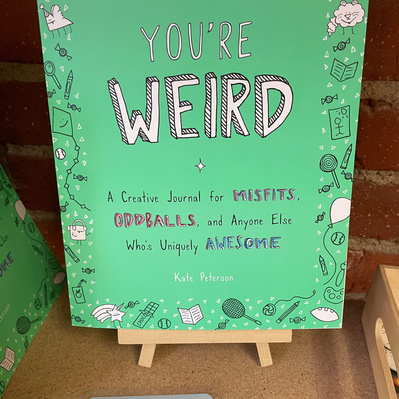 YOU'RE
WEIRD
A Creative Journal for MISFITS,
ODDBALLS, and Anyone Else
Who's Uniquely AWESOME
Kate Peterson